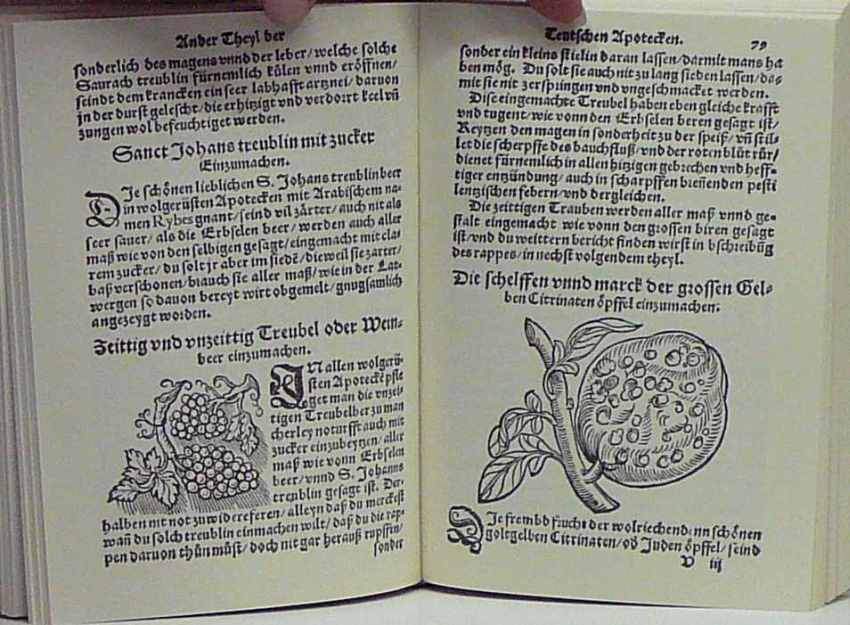 Ander Theyl der
sonderlich des magens vnnd der leber/ welche solche
Saurach treublin fürnemlich külen vnnd eröffnen/
seindt dem krancken ein seer labhafft arznei/ daruon
jn der durst gelescht/ die erhizigt vnd verdorrt keel vñ
zungen wol befeuchtiget werden.
Sanct Johans treublin mit zucker
Einzumachen.
DIe schönen lieblichen S. Johans treublin beer
in wolgerüsten Apotecken mit Arabischem na-
men Rybes gnant/ seind vil zärter/ auch nit als
seer sauer/ als die Erbselen beer/ werden auch aller
maß wie von den selbigen gesagt/ eingemacht mit cla-
rem zucker/ du solt jr aber im siedẽ/ dieweil sie zarter/
baß verschonen/ biauch sie aller maß/ wie in der Lat-
wergen so dauon bereyt wirt obgemelt/ gnugsamlich
angezeygt worden.
Zeittig vnd vnzeittig Treubel oder Wein-
beer einzumachen.
IN allen wolgerü-
sten Apoteckẽ pfle
get man die vnzei-
tigen Treubelber zu man
cherley notturfft auch mit
zucker einzubeytzen/ aller
maß wie vonn Erbselen
beer/ vnnd S. Johanns
treublin gesagt ist. Der-
halben nit not zu widereferen/ alleyn daß du merckest
wañ du solch treublin einmachen wilt/ daß du die rap-
pen daruon thün müst/ doch nit gar herauß rupffen/
sonder
Teutschen Apotecken. 79
sonder ein kleins stielin daran lassen/ darmit mans ha
ben mög. Du solt sie auch nit zu lang sieden lassen/ das
mit sie nit zerspringen vnd vngeschmacket werden.
Dise eingemachte Treubel haben eben gleiche krafft
vnd tugent/ wie vonn den Erbselen beren gesagt ist/
Reytzen den magen in sonderheit zu der speiß/ vñ stil-
let die scherpffe des bauchfluß/ vnd der roten blüt rür/
dienet fürnemlich in allen hitzigen gebrechen vnd heff-
tiger entzündung/ auch in scharpffen bienenden pesti
lentzischen febern/ vnd dergleichen.
Die zeittigen Trauben werden aller maß vnnd ge-
stalt eingemacht wie vonn den grossen biren gesagt
ist/ vnd du weittern bericht finden wirst in bschreibũg
des rappes/ in nechst volgendem theyl.
Die schelffen vnnd marck der grossen Gel-
ben Citrinaten öpffel einzumachen.
DIe frembd frücht der wolriechendenn schönen
goltgelben Citrinaten/ oď Juden öpffel/ seind
V iij